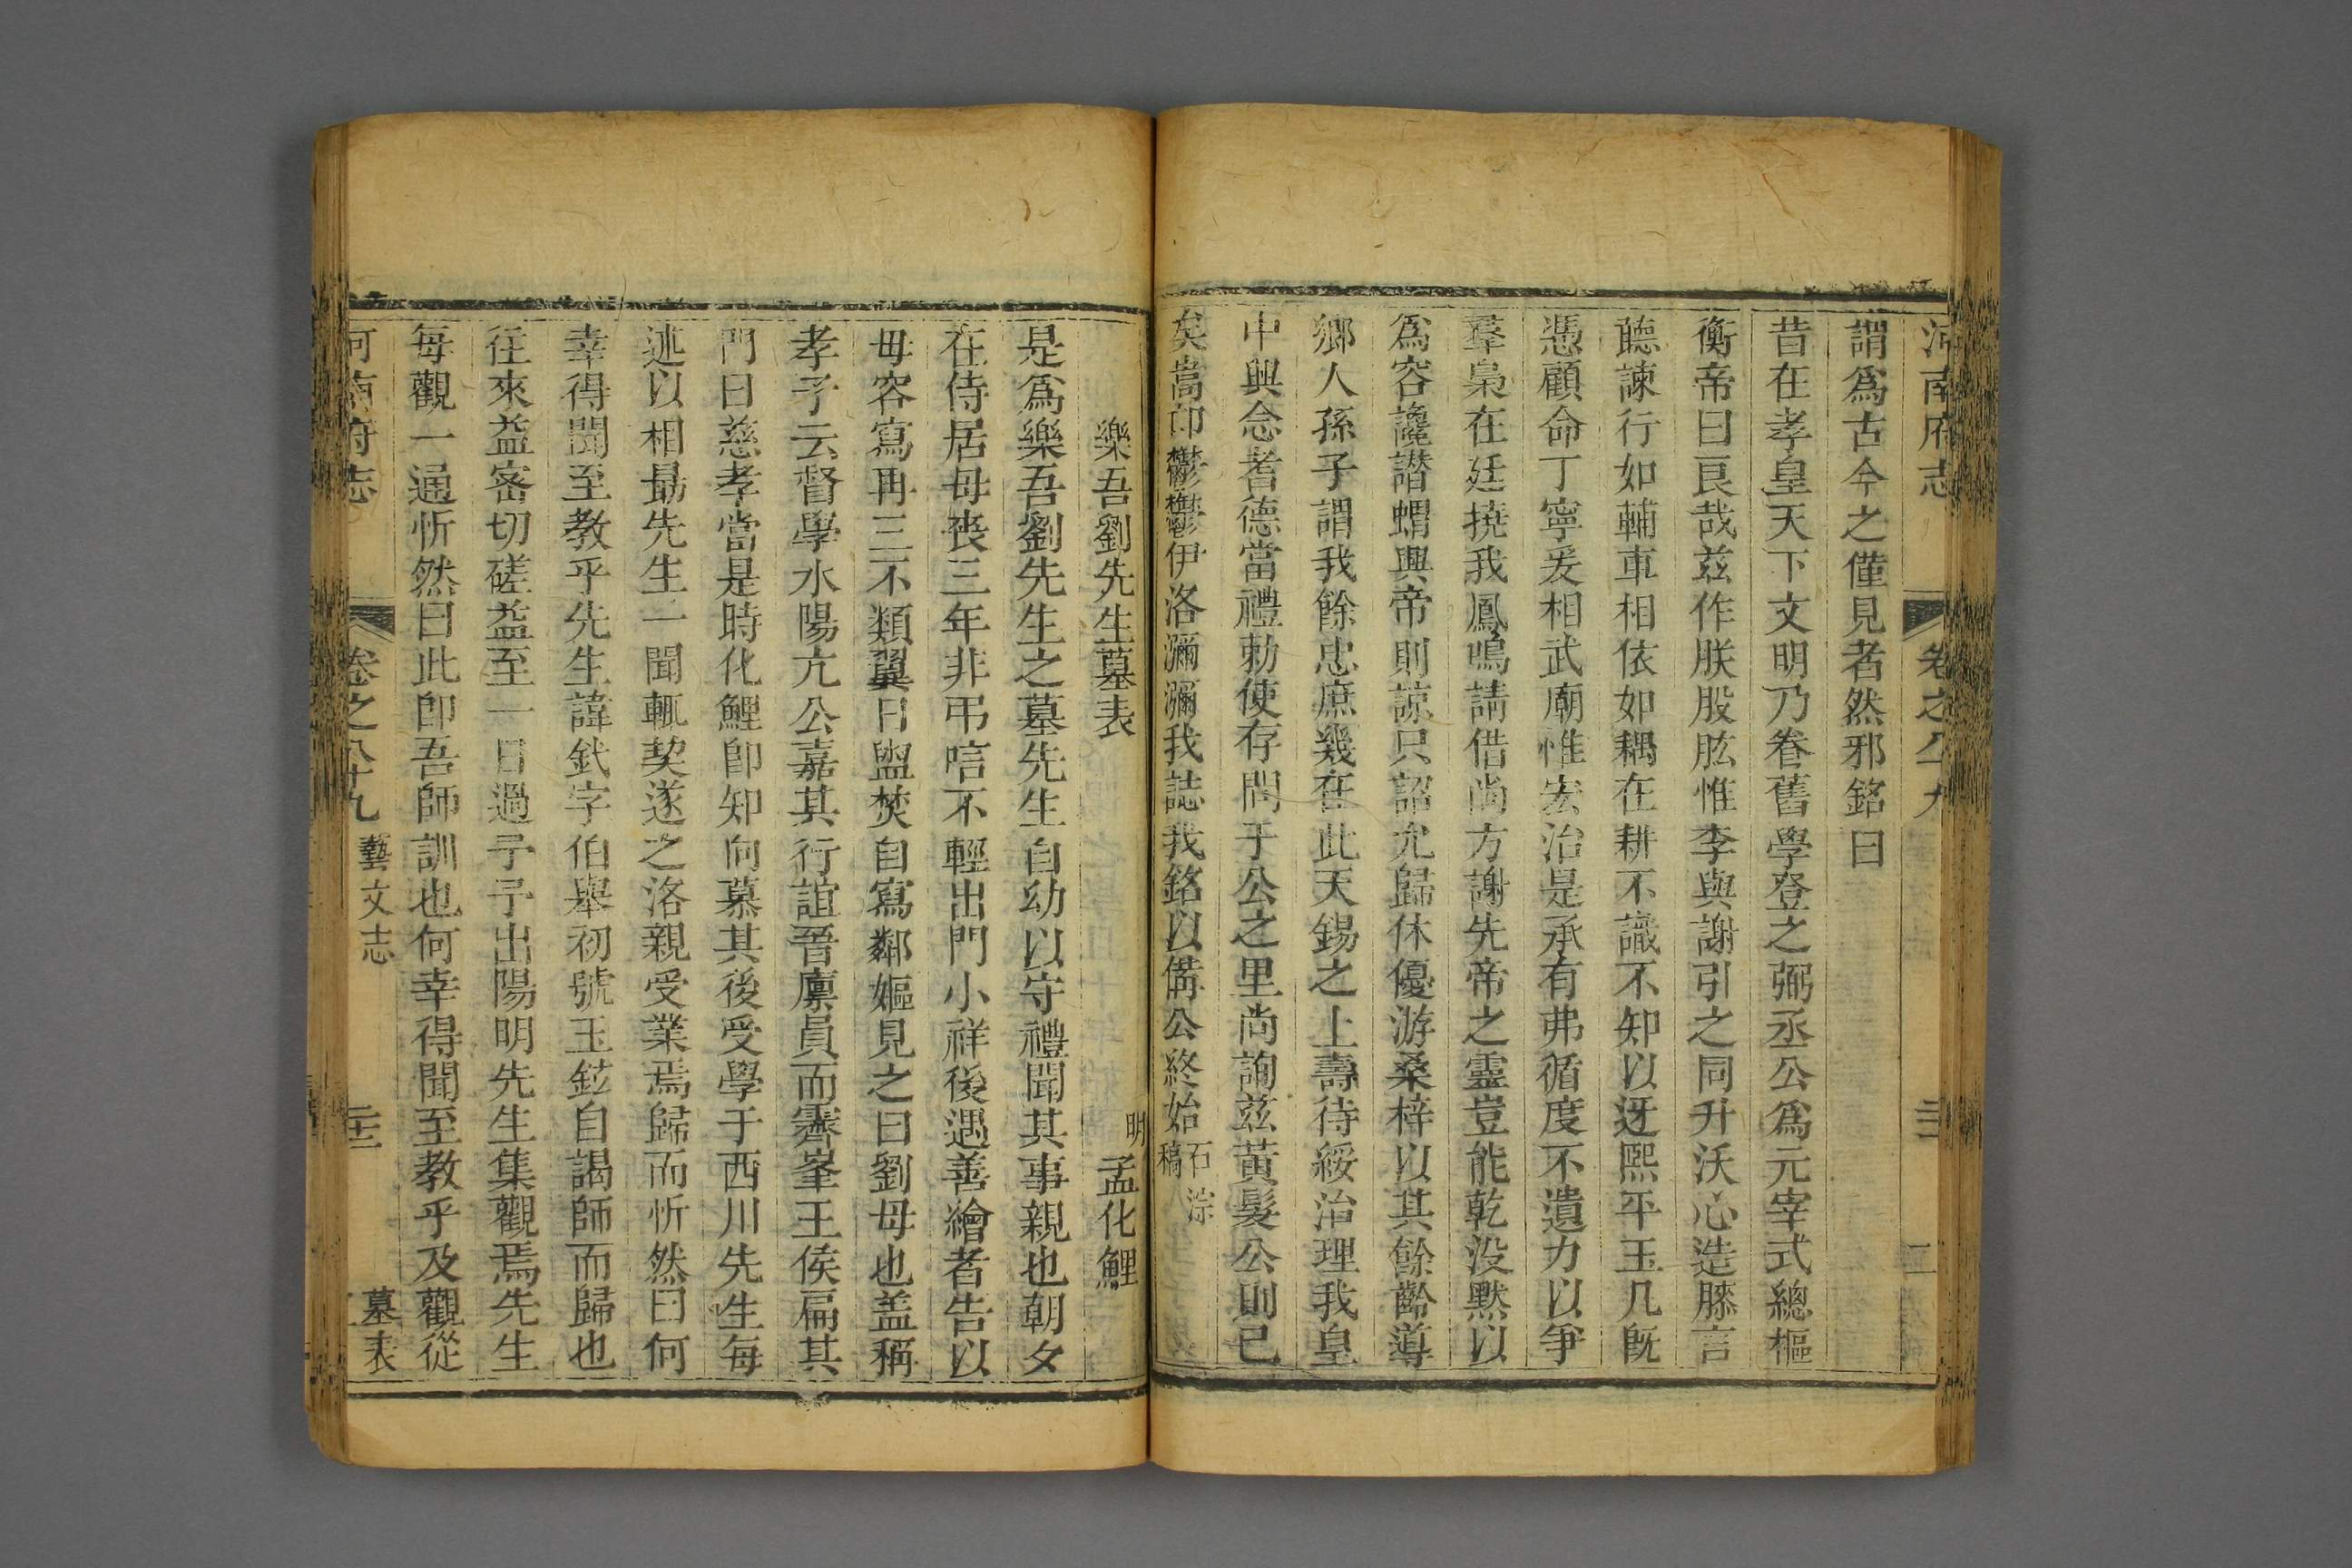 河南府志 卷之八十九
謂爲古今之僅見者然邪銘曰
昔在孝皇天下文明乃眷舊學登之弼丞公爲元宰式總樞
衡帝曰良哉兹作朕股肱惟李與謝引之同升沃心造膝言
聽諫行如輔車相依如耦在耕不識不知以迓熙平玉几既
憑顧命丁寧爰相武廟惟宏治是承有弗循度不遺力以爭
羣梟在廷撓我鳳鳴請借尚方謝先帝之靈豈能乾没默以
爲容讒譛蝟興帝則諒只詔允歸休優游桑梓以其餘齡導
鄉人孫子謂我餘忠庶幾在此天錫之上壽待綏治理我皇
中興念耆德當禮勅使存問于公之里尚詢兹黃髮公則已
矣嵩卬鬱鬱伊洛瀰瀰我誌我銘以備公終始石淙稿
樂吾劉先生墓表 明 孟化鯉
是爲樂吾劉先生之墓先生自幼以守禮聞其事親也朝夕
在侍居母丧三年非弔唁不輕出門小祥後遇善繪者告以
毋容寫再三不類翼日盥焚自寫鄰嫗見之曰劉母也盖稱
孝子云督學水陽亢公嘉其行誼晉廪員而霽峯王侯扁其
門曰慈孝當是時化鯉卽知向慕其後受學于西川先生每
述以相勗先生一聞輒契遂之洛親受業焉歸而忻然曰何
幸得聞至教乎先生諱釴字伯舉初號玉鉉自謁師而歸也
往來益密切磋益至一日過予予出陽明先生集觀焉先生
每觀一通忻然曰此卽吾師訓也何幸得聞至教乎及觀從
河南府志 卷之八十九 藝文志 墓表